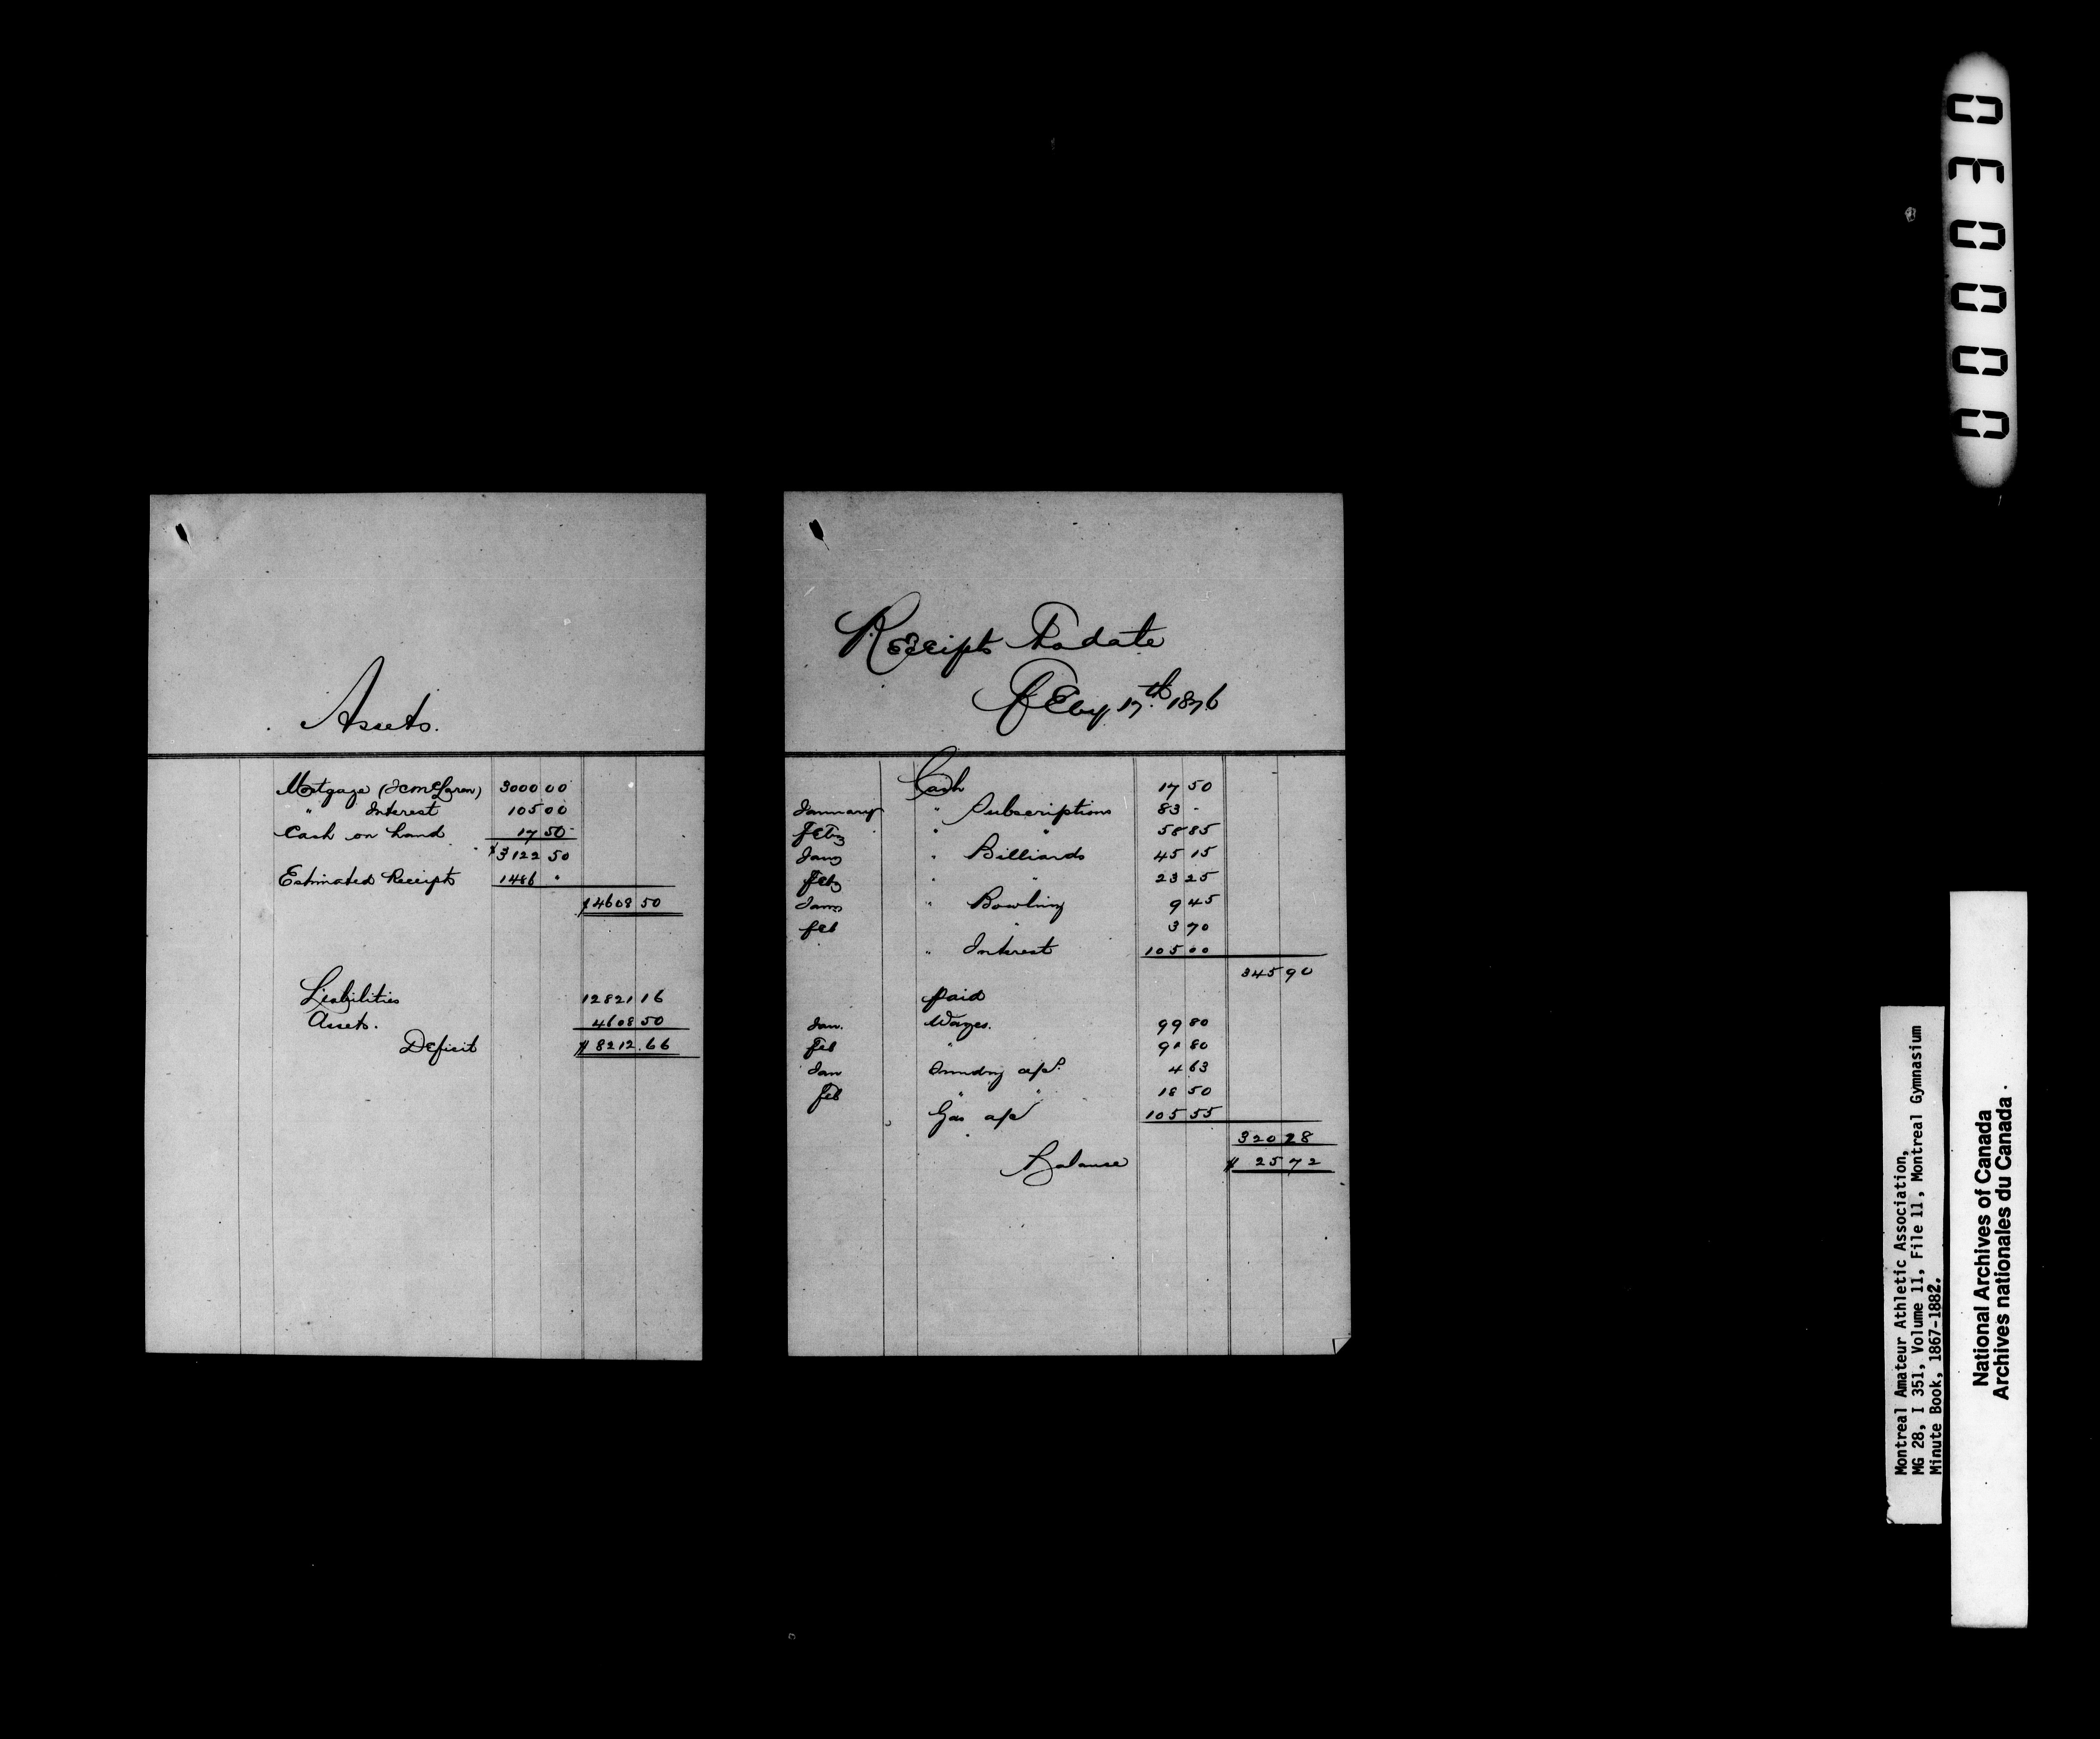 Assets.
Mortgage (J C McLaren) 3000 00
" Interest 105 00
Cash on hand 17 50
$3122 50
Estimated Receipts 1486 "
$4608 50
Liabilities 12821 16
Assets. 4608 50
Deficit $8212.66
Receipts To date
Feby 17th 1876
Cash 17 50
January " Subscriptions 83 -
Feby " " 58 85
Jany " Billiards 45 15
Feby " " 23 25
Jany " Bowling 9 45
Feb " 3 70
" Interest 105 00
345 90
Paid
Jan. Wages. 99 80
Feb " 91 80
Jan Sundry a/c. 4 63
Feb " " 18 50
Gas a/c 105 55
320 28
Balance $ 25 72
000030
Montreal Amateur Athletic Association,
MG 28, I 351, Volume 11, File 11, Montreal Gymnasium
Minute Book, 1867-1882.
National Archives of Canada
Archives nationales du Canada